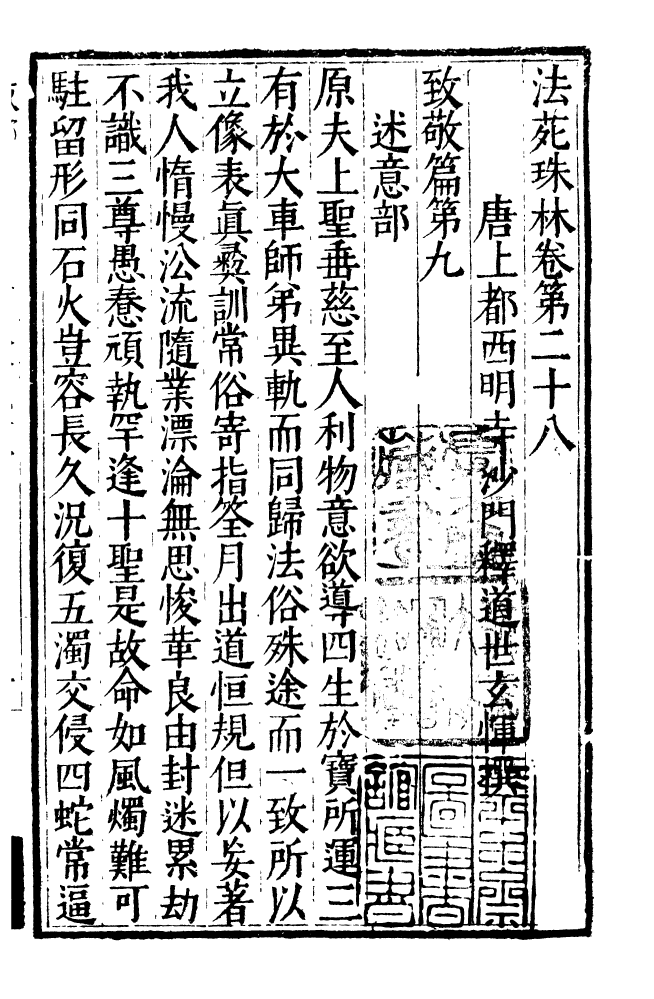 法苑珠林卷第二十八
唐上都西明寺沙門釋道世玄惲撰
致敬篇第九
述意部
原夫上聖垂慈至人利物意欲導四生於寶所運三
有於大車師弟異軌而同歸法俗殊途而一致所以
立像表眞彝訓常俗寄指筌月出道恒規但以妄著
我人惰慢㳂流隨業漂淪無思悛革良由封迷累劫
不識三尊愚惷頑執罕逢十聖是故命如風燭難可
駐留形同石火豈容長久況復五濁交侵四蛇常逼